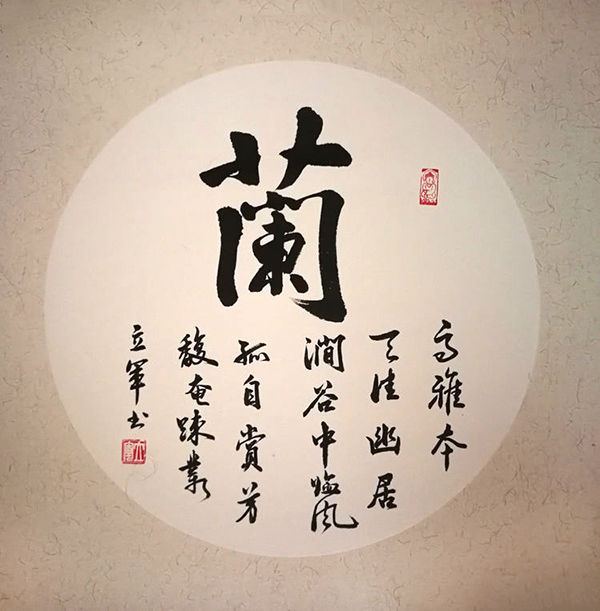 蘭
高雅本
天性幽居
澗谷中臨風
孤自賞芳
馥奄踈叢
立軍书